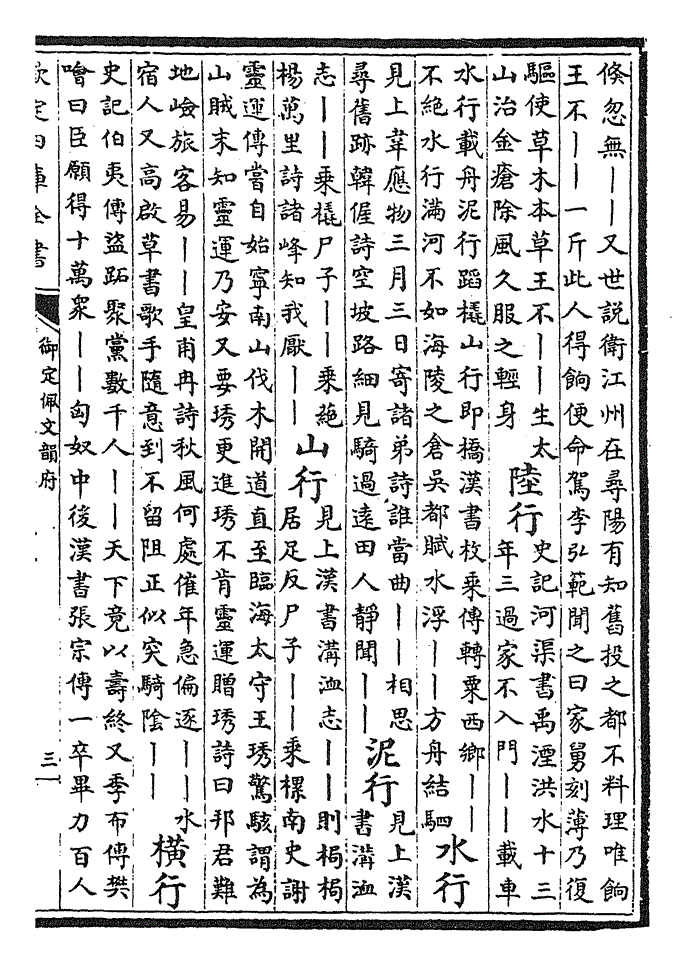 倏忽無｜｜又世説衛江州在尋陽有知舊投之都不料理唯餉
王不｜｜一斤此人得餉便命駕李弘範聞之曰家舅刻薄乃復
驅使草木本草王不｜｜生太
山治金瘡除風久服之輕身
陸行
史記河渠書禹湮洪水十三
年三過家不入門｜｜載車
水行載舟泥行蹈橇山行即橋漢書枚乗傳轉粟西鄉｜｜
不絶水行滿河不如海陵之倉吳都賦水浮｜｜方舟結駟
水行
見上韋應物三月三日寄諸弟詩誰當曲｜｜相思
尋舊跡韓偓詩空坡路細見騎過遠田人靜聞｜｜
泥行
見上漢
書溝洫
志｜｜乗橇尸子｜｜乗蕝
楊萬里詩諸峰知我厭｜｜
山行
見上漢書溝洫志｜｜則梮梮
居足反尸子｜｜乗樏南史謝
靈運傳嘗自始寧南山伐木開道直至臨海太守王琇驚駭謂為
山賊末知靈運乃安又要琇更進琇不肯靈運贈琇詩曰邦君難
地嶮旅客易｜｜皇甫冉詩秋風何處催年急偏逐｜｜水
宿人又高啟草書歌手隨意到不留阻正似突騎陰｜｜
橫行
史記伯夷傳盜跖聚黨數千人｜｜天下竟以壽終又季布傳樊
噲曰臣願得十萬衆｜｜匈奴中後漢書張宗傳一卒畢力百人
欽定四庫全書
御定佩文韻府
三